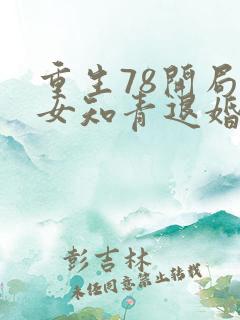 重生78开局
女知青退婚
彭吉林
未经同意禁止转载